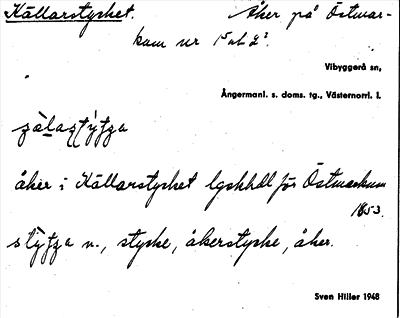 Källarstycket. Åker på Östmar-
kum nr 1 och 2².
Vibyggerå sn,
Ångermanl. s. doms. tg., Västernorrl. l.
åker i Källarstycket lgskhdl för Östmarkum
1853.
n., stycke, åkerstycke, åker.
Sven Hiller 1948